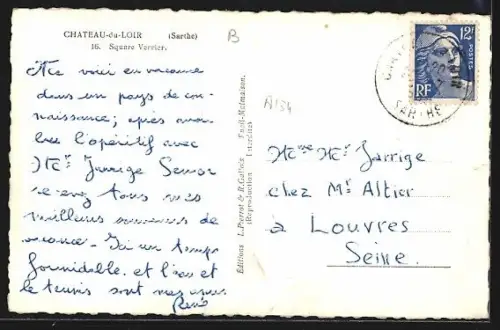 CHATEAU-du-LOIR (Sarthe)
16. Square Verrier.
B
12F
POSTES
RF
SARTHE
A134
Me voici en vacance
dans un pays de con-
naissance; après avoir
bu l'apéritif avec
Mr Jarrige Senior
recevez tous mes
meilleurs souvenirs de
vacance. Ici un temps
formidable. et l'eau et
le tennis sont mes
René
Editions L. Perrot & R. Rueil-Malmaison.
(Reproduction Interdite)
Mme Mr Jarrige
chez Mr Altier
à Louvres
Seine.